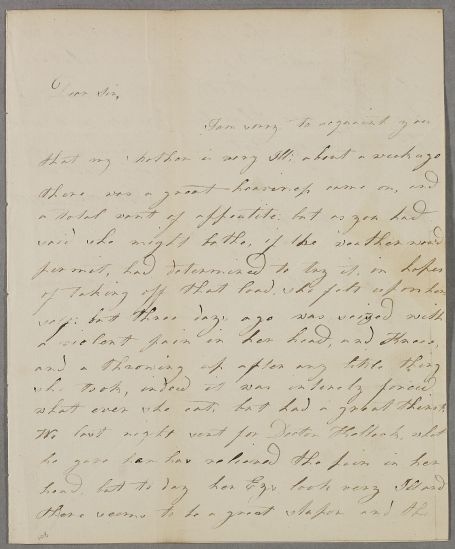 Dear Sir,
I am sorry to acquaint you
that my Mother is very Ill: about a week ago
there was a great heaviness came on, and
a total want of appetite: but as you had
said she might bathe, if the weather woud
permit, had determined to try it, in hopes
of taking off that load, she felt upon her
self: but three days ago was seized with
a violent pain in her head, and Knees,
and a throwing up after any little thing
she took, indeed it was intirely forced
what ever she eat; but had a great thirst,
We last night sent for Doctor what
he gave her has relieved the pain in her
head, but to day her Eys look very Ill and
there seems to be a great stupor and